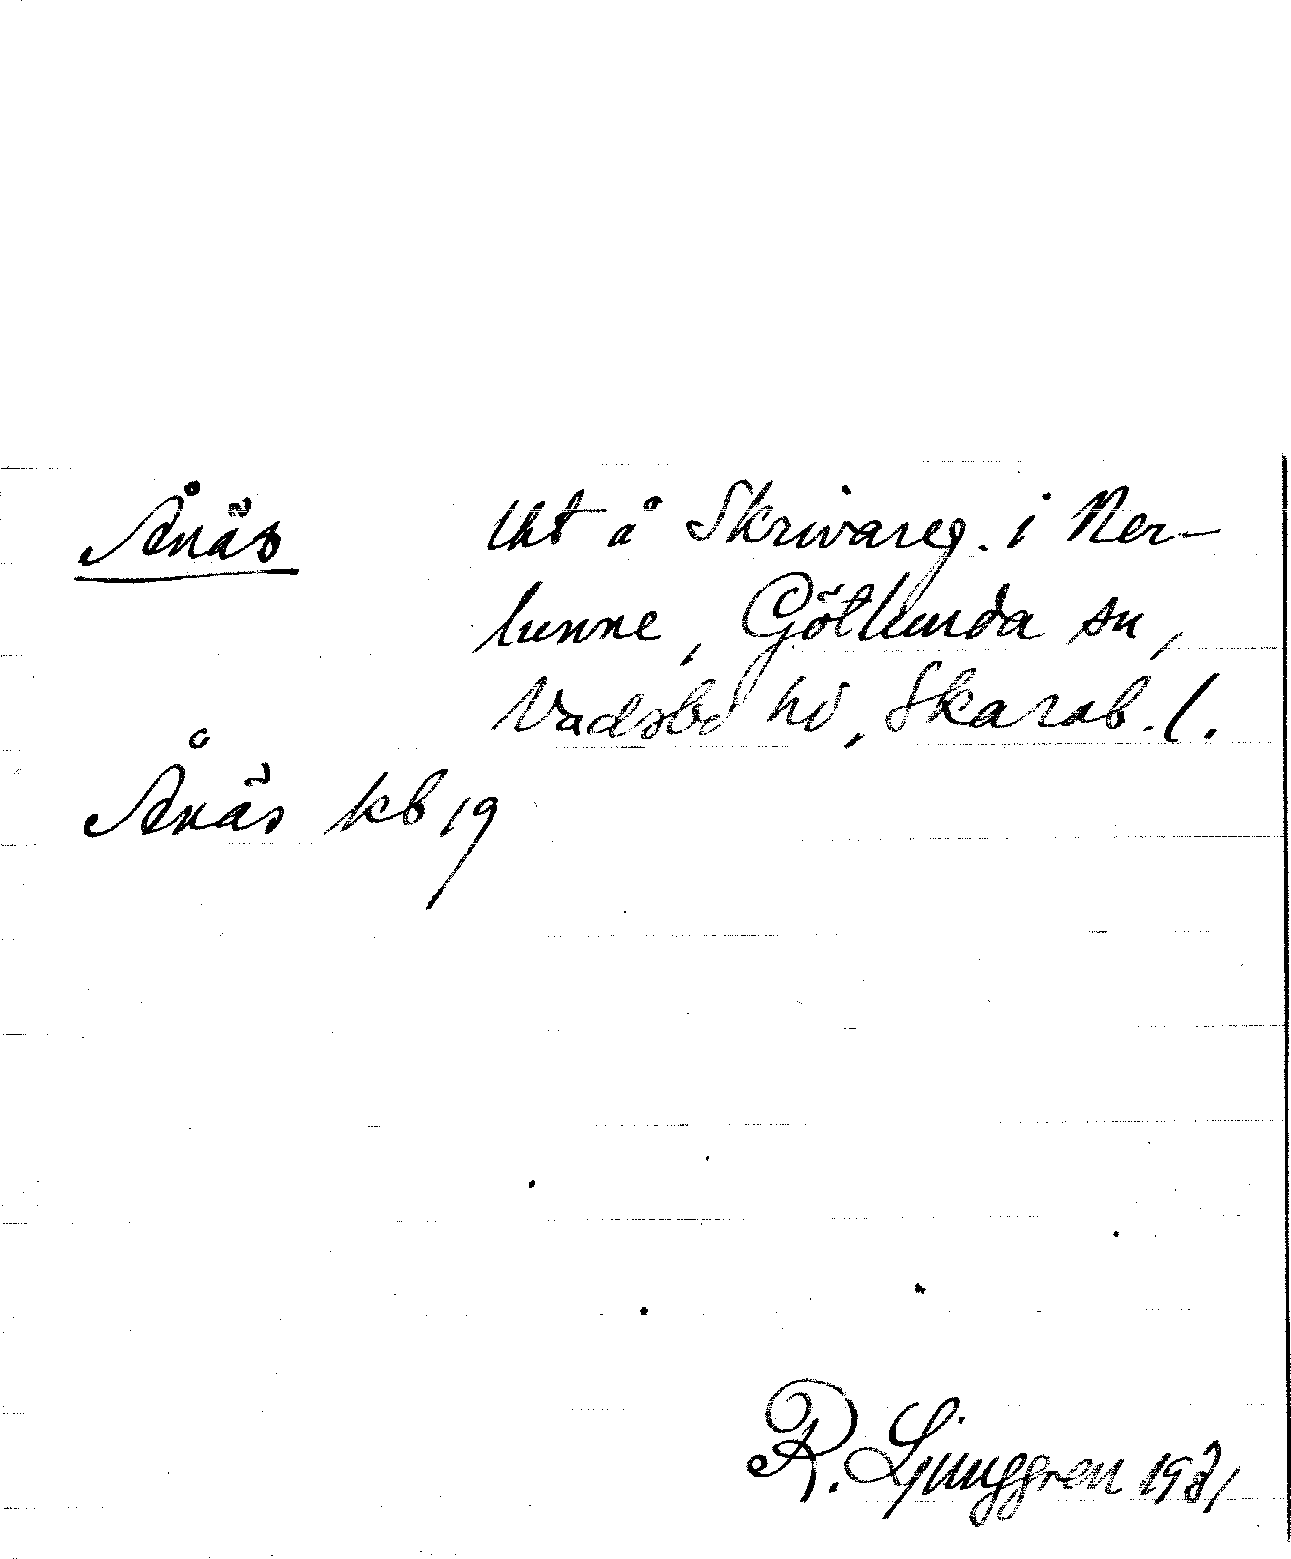 Ånäs lht å Skrivareg. i Ner-
lunne, Götlunda sn,
Vadsbo hd, Skarab. l.
Ånäs kb 19
R. Ljunggren